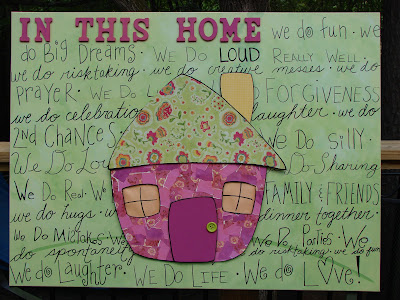 IN THIS HOME we do fun · we
do BIG Dreams · We Do LOUD REALLY WELL ·
we do risktaking · we do creative messes · we do
PRAYER · WE DO FORGIVENESS
we do celebration laughter · we do
2nd CHANCES · We Do SILLY
We Do Do Sharing
We Do Real · We FAMILY & FRIENDS
we do hugs dinner together ·
We Do Mistakes · We We Do Parties · We
do spontaneity risktaking · we do fun
We do Laughter · WE DO LIFE · We do LOVE!